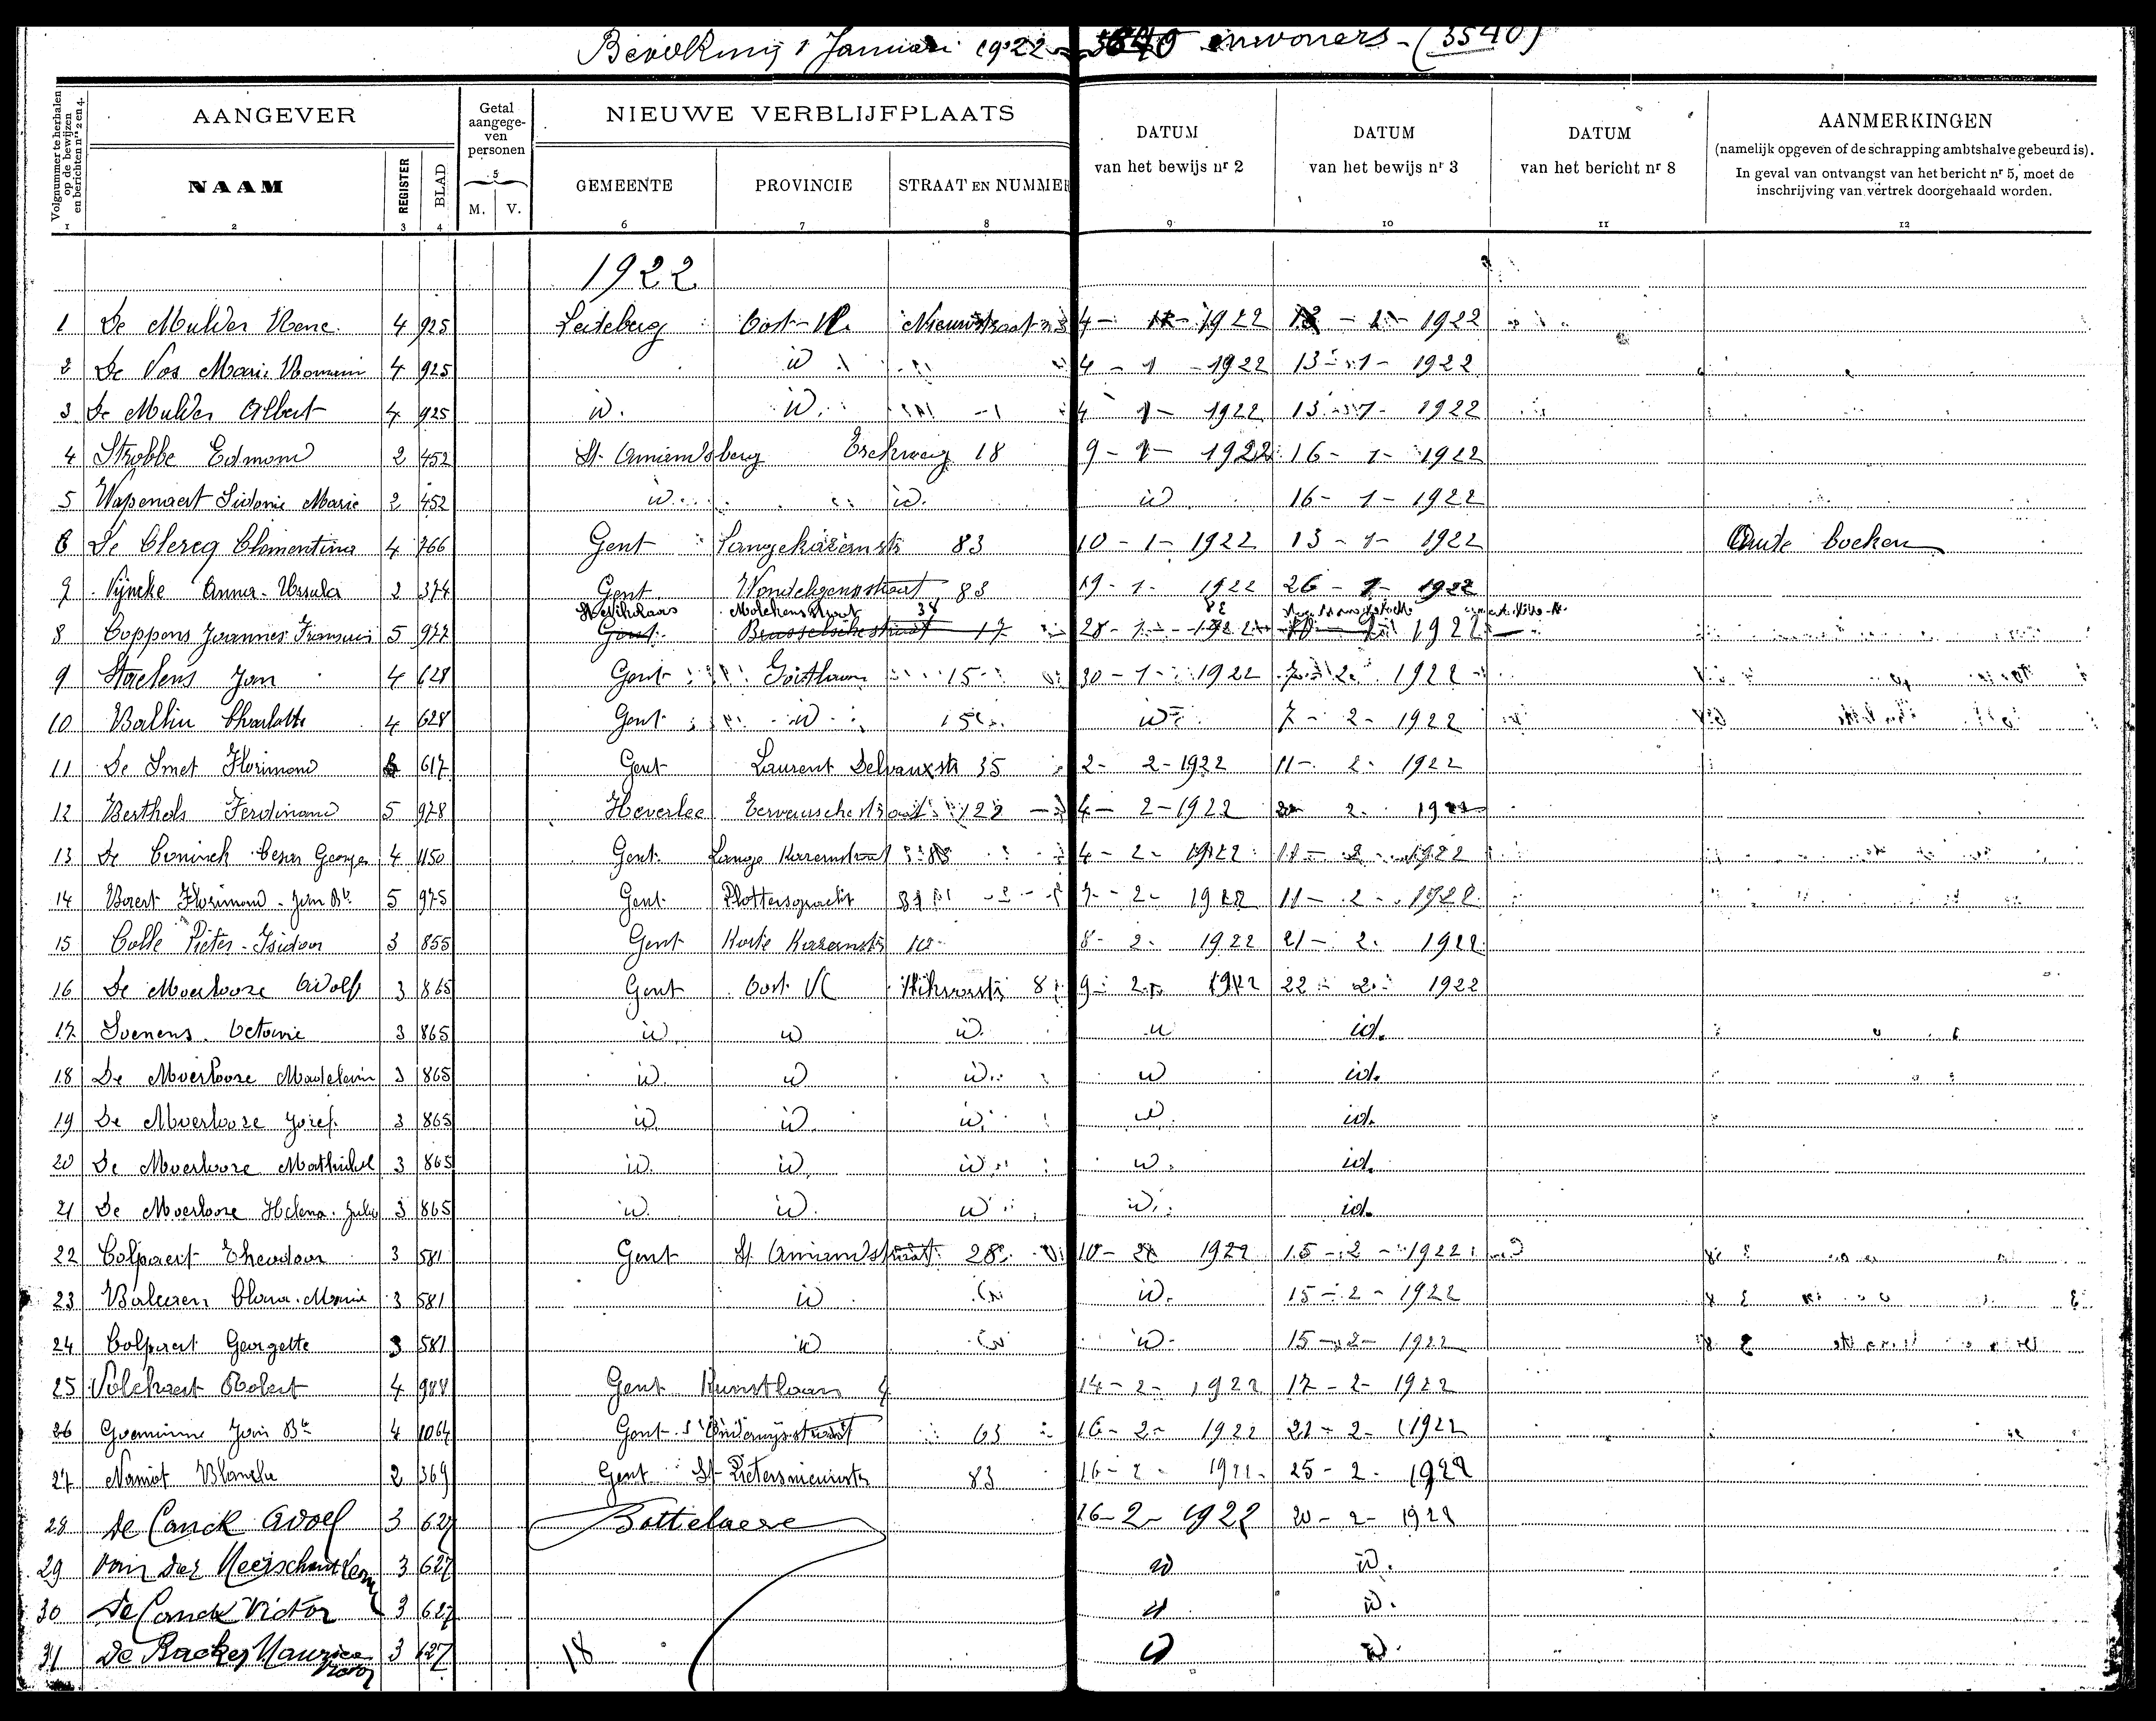 Bevolking 1 Januari 1922 inwoners - (3540)
Volgnummer te herhalen op de bewijzen en berichten nrs 2 en 4.
AANGEVER
Getal aangegeven personen
NIEUWE VERBLIJFPLAATS
DATUM van het bewijs nr 2
DATUM van het bewijs nr 3
DATUM van het bericht nr 8
AANMERKINGEN
(namelijk opgeven of de schrapping ambtshalve gebeurd is).
In geval van ontvangst van het bericht nr 5, moet de
inschrijving van vertrek doorgehaald worden.
NAAM REGISTER BLAD 5 M. V. GEMEENTE PROVINCIE STRAAT EN NUMMER
1 2 3 4 6 7 8 9 10 11 12
1922
1 De Mulder 4 925 Ledeberg Oost-Vl. Nieuwstraat 4 - 1922 1922
2 De Vos Marie 4 925 id 4 - 1 - 1922 13 - 1 - 1922
3 De Mulder Albert 4 925 id. id. 4 1 - 1922 13 - 1 - 1922
4 Strobbe Edmond 2 452 St. Amandsberg 18 9 - 1 - 1922 16 - 1 - 1922
5 Wapenaert Sidonie Marie 2 452 id. id. id 16 - 1 - 1922
6 De Clercq Clementina 4 766 Gent 83 10 - 1 - 1922 13 - 1 - 1922 Oude boeken
7 Vyncke Anna-Ursula 2 374 Gent 83 19 - 1 - 1922 26 - 1 - 1922
St Nikolaas 38
8 Coppens Joannes Franciscus 5 977 Gent Brusselschestraat 17 28 - 1 - 1922 1922
9 Staelens Jan 4 628 Gent 15 30 - 1 - 1922 7 - 2 - 1922
10 Ballin Charlotte 4 628 Gent id 15 id 7 - 2 - 1922
11 De Smet Florimond 617 Gent Laurent Delvauxstr 35 2 - 2 - 1922 11 - 2 - 1922
12 Berthols Ferdinand 5 978 Heverlee 122 4 - 2 - 1922 2 - 1922
13 De Coninck Cesar Georges 4 1150 Gent Lange Kazernstraat 4 - 2 - 1922 2 - 1922
14 Florimond - Jan Bte 5 975 Gent Plottersgracht 7 - 2 - 1922 11 - 2 - 1922
15 Colle Pieter-Isidoor 3 855 Gent Korte Kazernstr 10 8 - 2 - 1922 21 - 2 - 1922
16 De Moerloose Adolf 3 865 Gent Oost Vl 9 - 2 - 1922 22 - 2 - 1922
17 Soenens 3 865 id id id. id id.
18 De Moerloose 3 865 id. id id. id id.
19 De Moerloose Jozef 3 865 id. id. id. id. id.
20 De Moerloose 3 865 id. id. id. id. id.
21 De Moerloose Helena. 3 865 id. id. id id. id.
22 Colpaert Theodoor 3 581 Gent St. Amandstraat 28 10 - 1922 15 - 2 - 1922
23 Clara. Maria 3 581 id id. 15 - 2 - 1922
24 Colpaert Georgette 3 581 id id. 15 - 2 - 1922
25 Volckaert Robert 4 988 Gent Kunstlaan 4 14 - 2 - 1922 17 - 2 - 1922
26 Goeminne Jan Bte 4 1064 Gent 63 16 - 2 - 1922 21 - 2 - 1922
27 Blanche 2 369 Gent St-Pietersnieuwstr 83 16 - 2 - 1922 25 - 2 - 1922
28 De Canck Adolf 3 627 Bottelaere 16 - 2 - 1922 20 - 2 - 1922
29 Van der Meerschaut 3 627 id id.
30 De Canck Victor 3 627 id id.
31 De Backer Maurice Victor 3 627 18 id id.